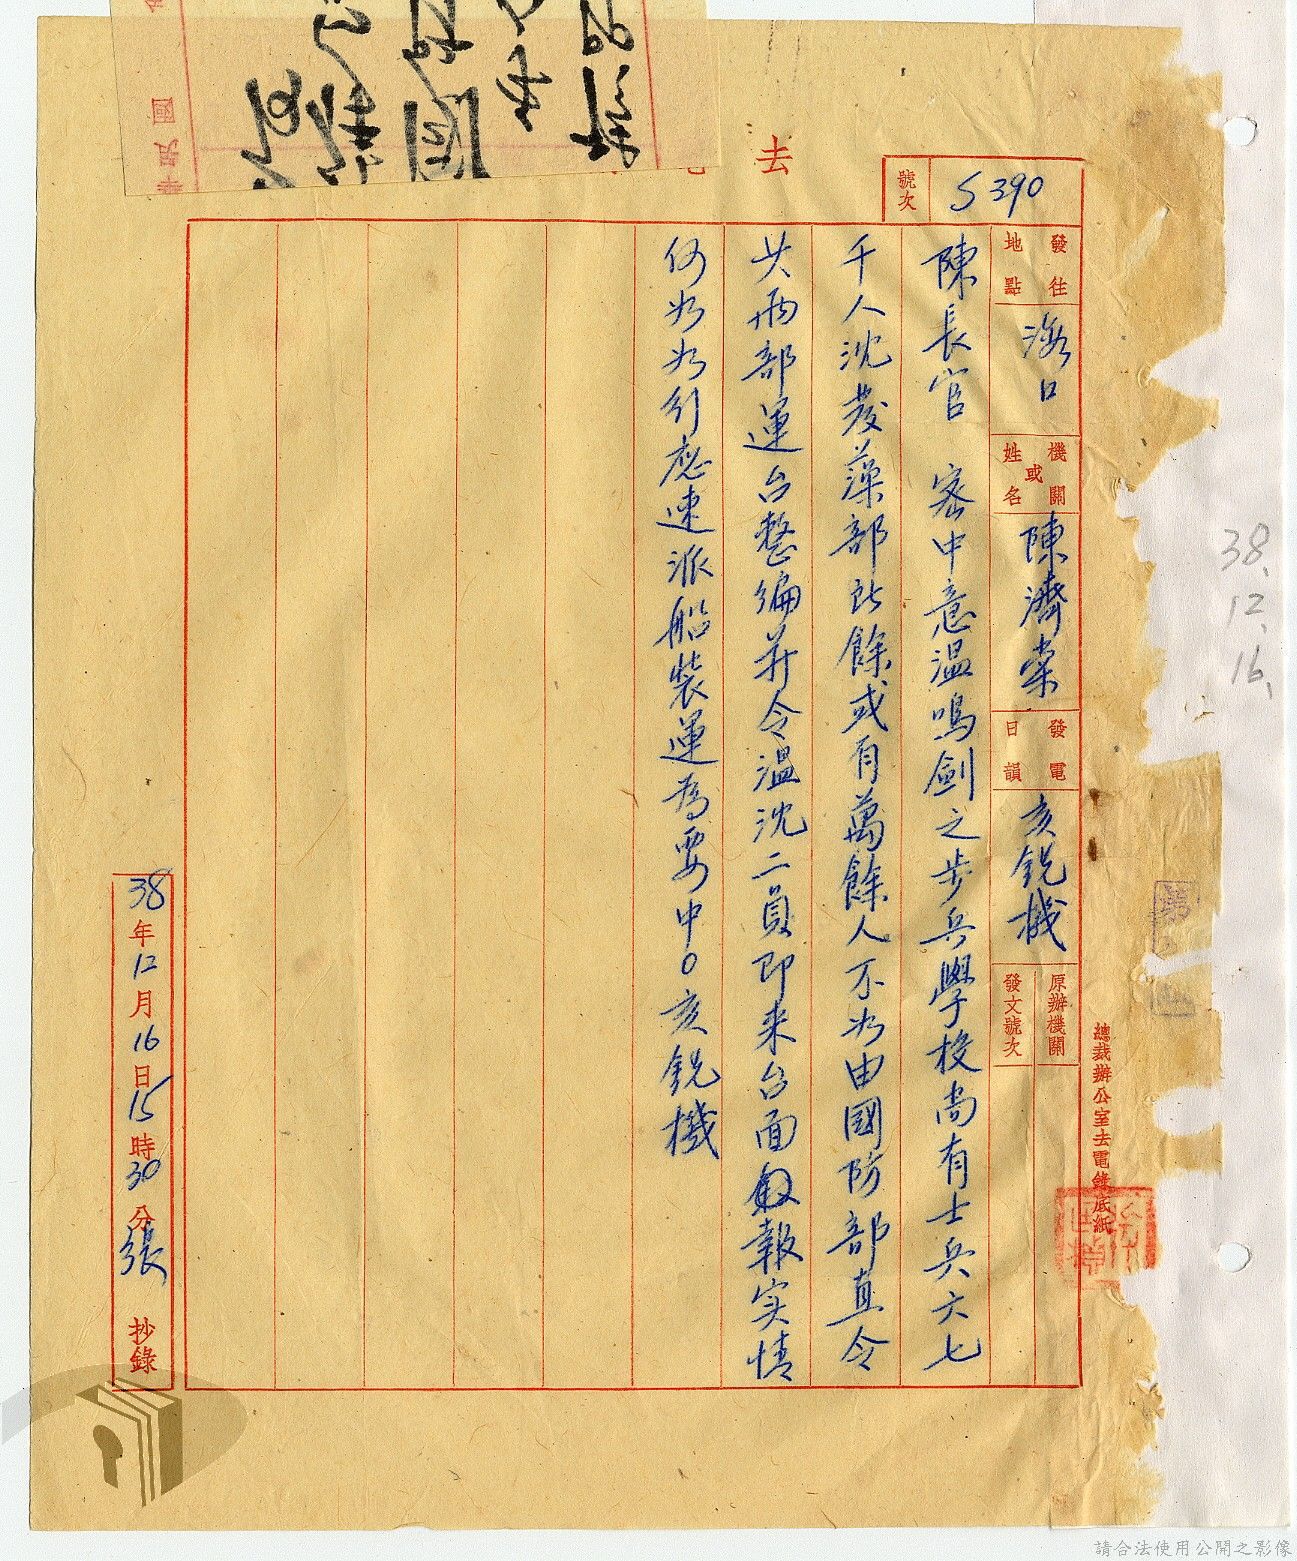 去
號次
5390
發往地點
海口
機關或姓名
陳濟棠
發電日韻
亥銳機
原辦機關
發文號次
陳長官 密中意温鳴劍之步兵學校尚有士兵六七
千人沈發藻部所餘或有萬餘人不如由國防部直令
其兩部運台整編并令温沈二員即来台面報實情
何如如行應速派船裝運為要中○亥銳機
總裁辦公室去電錄底紙
38年12月16日15時30分張 抄錄
38.
12.
16.
請合法使用公開之影像